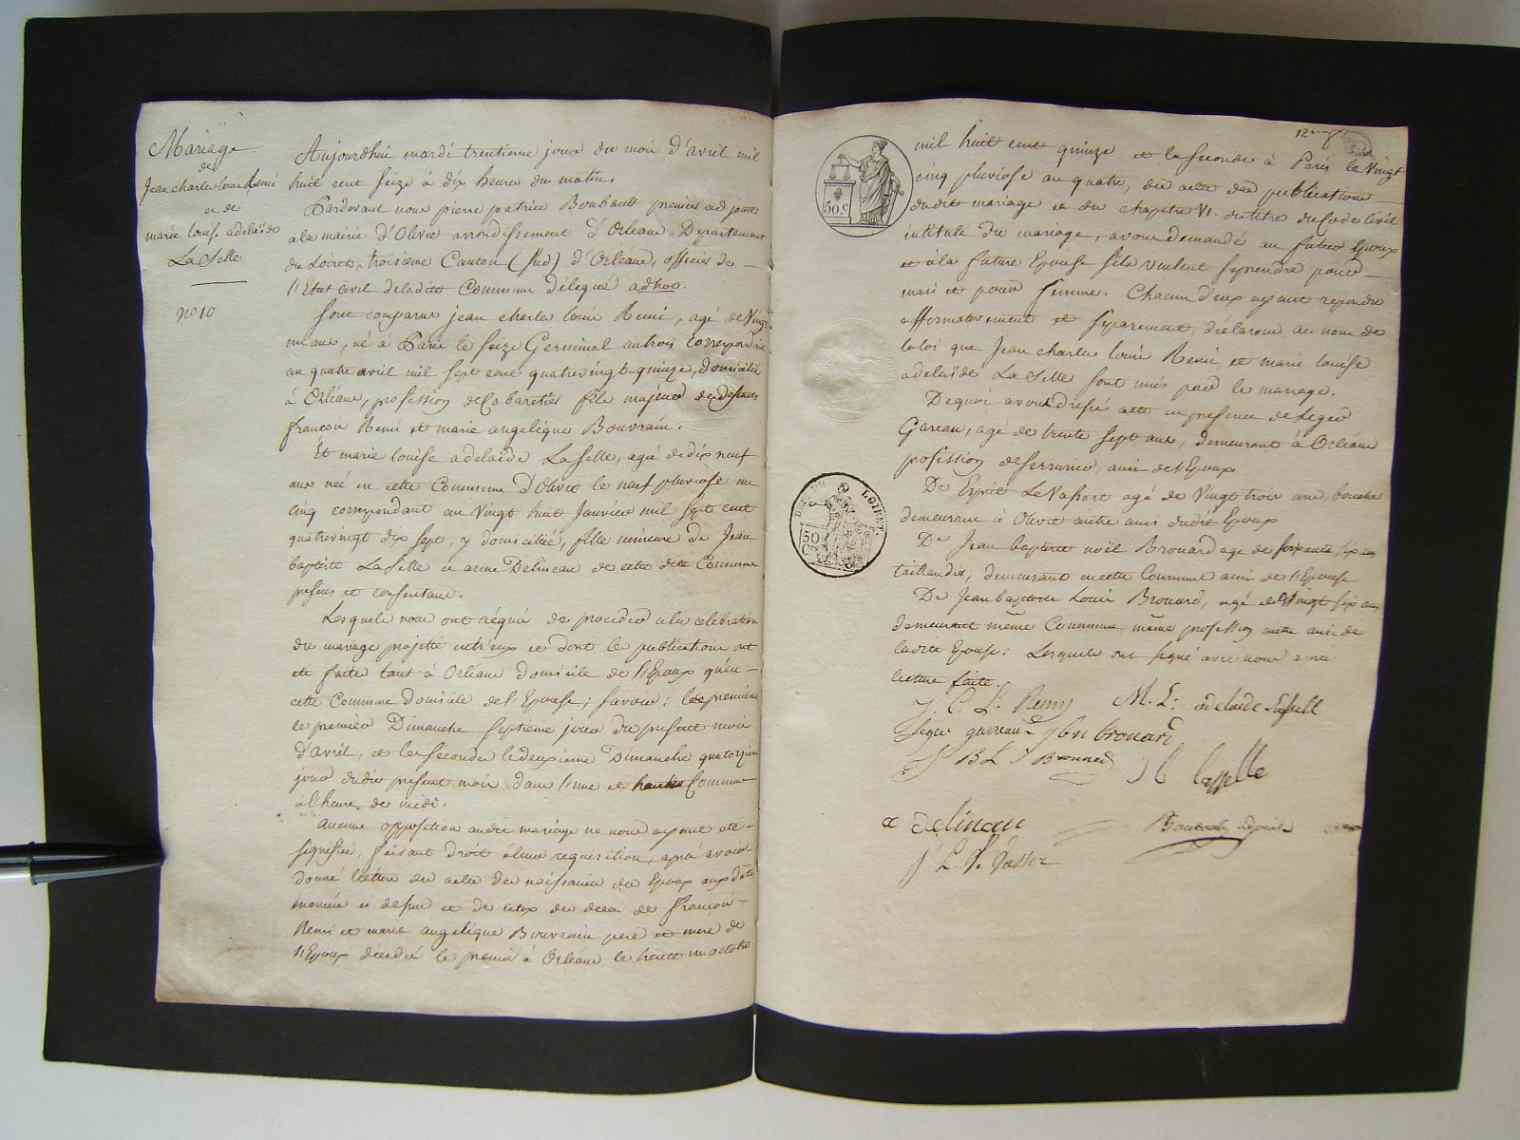 Mariage
de
Jean charles louis Remi
et de
marie louise adelaïde
La Selle
no 10
Aujourdhui mardi trentieme jour du mois d'avril mil
huit cent seize à dix heures du matin.
Pardevant nous pierre patrice Boubault premier adjoint
a la mairie d'Olivet arrondissement d'Orléans Departement
du Loiret, troisieme Canton (sud) d'Orléans, officier de
l'Etat civil de ladite Commune délégué adhoc.
Sont comparus jean charles louis Remi, agé de Vingt
un ans, né à Paris le seize Germinal an trois correspondant
au quatre avril mil sept cent quatrevingt-quinze, domicilié
à Orléans, profession de Cabaretier fils majeur de défunts
françois Remi et marie angelique Bouvrain.
Et marie louise adelaïde La Selle, agée de dix neuf
ans née en cette Commune d'Olivet le neuf pluviose an
cinq correspondant au Vingt huit Janvier mil sept cent
quatrevingt dix sept, y domiciliée, fille mineure de Jean
baptiste La Selle et anne Delineau de cette dite Commune
présens et consentans.
Lesquels nous ont réquis de proceder a la celebration
du mariage projetté entr'eux et dont les publications ont
été faites tant à Orléans domicile de l'Epoux qu'en
cette Commune domicile de l'Epouse; savoir: la premiere
le premier Dimanche septieme jour du présent mois
d'avril, et la seconde le deuxieme Dimanche quatorzieme
jour dudit présent mois, dans l'une et l'autre Commune
à l'heure de midi.
aucune opposition audit mariage ne nous ayant été
signifiée, faisant droit à leur requisition, après avoir
donné lecture des actes de naissance des Epoux
et de ceux du deces de françois
Remi et marie angelique Bouvrain pere et mere de
l'Epoux décédés le premier à Orléans le trente un octobre
12
mil huit cent quinze et la seconde à Paris le Vingt
cinq pluviose an quatre, des actes des publications
dudit mariage et du chapitre VI. du titre du Code Civil
intitulé du mariage, avons demandé au futur Epoux
et à la future Epouse s'ils veulent se prendre pour
mari et pour femme. Chacun d'eux ayant repondu
affirmativement et séparement, déclarons au nom de
la loi que Jean charles louis Remi et marie louise
adelaïde La Selle sont unis par le mariage.
De quoi avons dressé acte en présence de Leger
Gareau, agé de trente sept ans, demeurant à Orléans
profession de serrurier, ami de l'Epoux
De Esprit Le Vassort agé de Vingt trois ans, boucher
demeurant à Olivet autre ami dudit Epoux
De Jean baptiste noël Brouard agé de soixante six ans
taillandier, demeurant en cette Commune ami de l'Epouse
De Jean baptiste Louis Brouard, agé de Vingt six ans
demeurant même Commune, même profession autre ami de
ladite Epouse: Lesquels ont signé avec nous après
lecture faite.
J. C. L. Remy M. L. adelaide Laselle
Leger gareau J bn brouard
J B L Brouard J b laselle
a delineau Boubault adjoint
50 C.
LOIRET.
50
C.